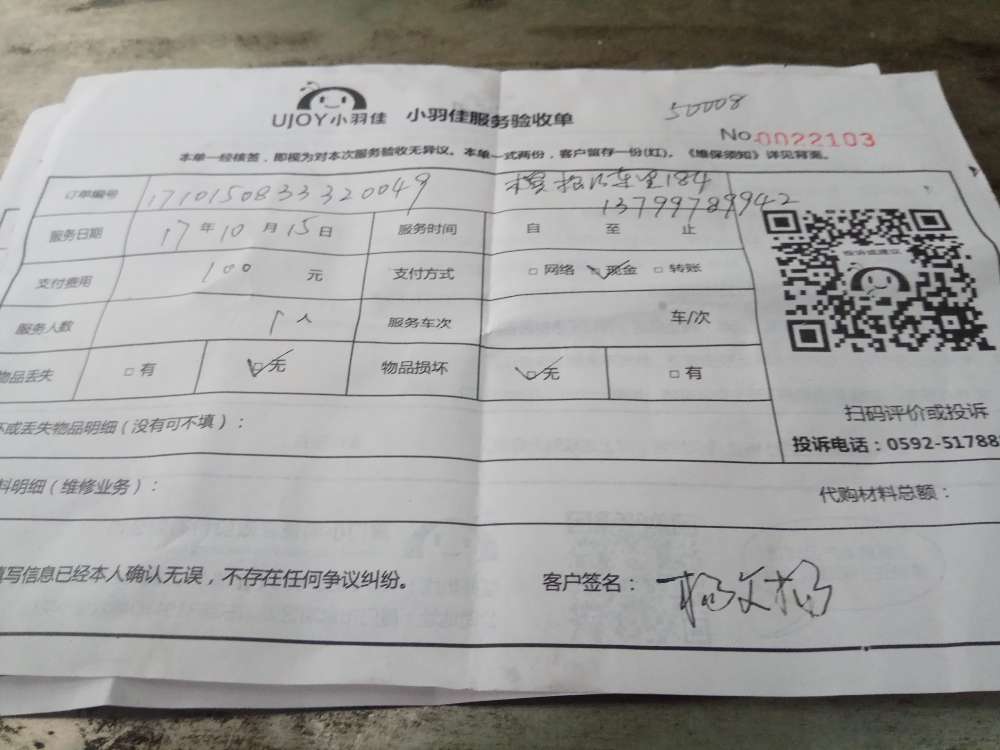 50008
UJOY小羽佳 小羽佳服务验收单
No.0022103
本单一经核签，即视为对本次服务验收无异议。本单一式两份，客户留存一份(红)。《维保须知》详见背面。
订单编号 1710150833320049 184
13799789942
服务日期 17年10月15日 服务时间 自 至 止
支付费用 100 元 支付方式 □网络 ☑现金 □转账
服务人数 1人 服务车次 车/次
物品丢失 □有 ☑无 物品损坏 ☑无 □有
投诉或建议
扫码评价或投诉
坏或丢失物品明细（没有可不填）：
投诉电话：0592-51788
料明细（维修业务）： 代购材料总额：
填写信息已经本人确认无误，不存在任何争议纠纷。 客户签名：杨文杨